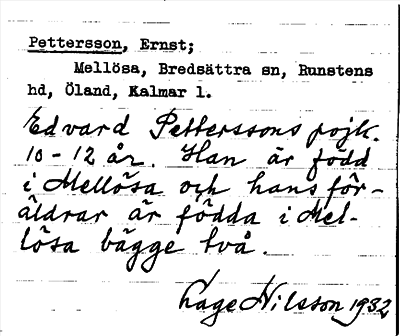 Pettersson, Ernst;
Mellösa, Bredsättra sn, Runstens
hd, Öland, Kalmar l.
Edvard Petterssons pojk.
10-12 år. Han är född
i Mellösa och hans för-
äldrar är födda i Mel-
lösa bägge två.
Lage Nilsson 1932